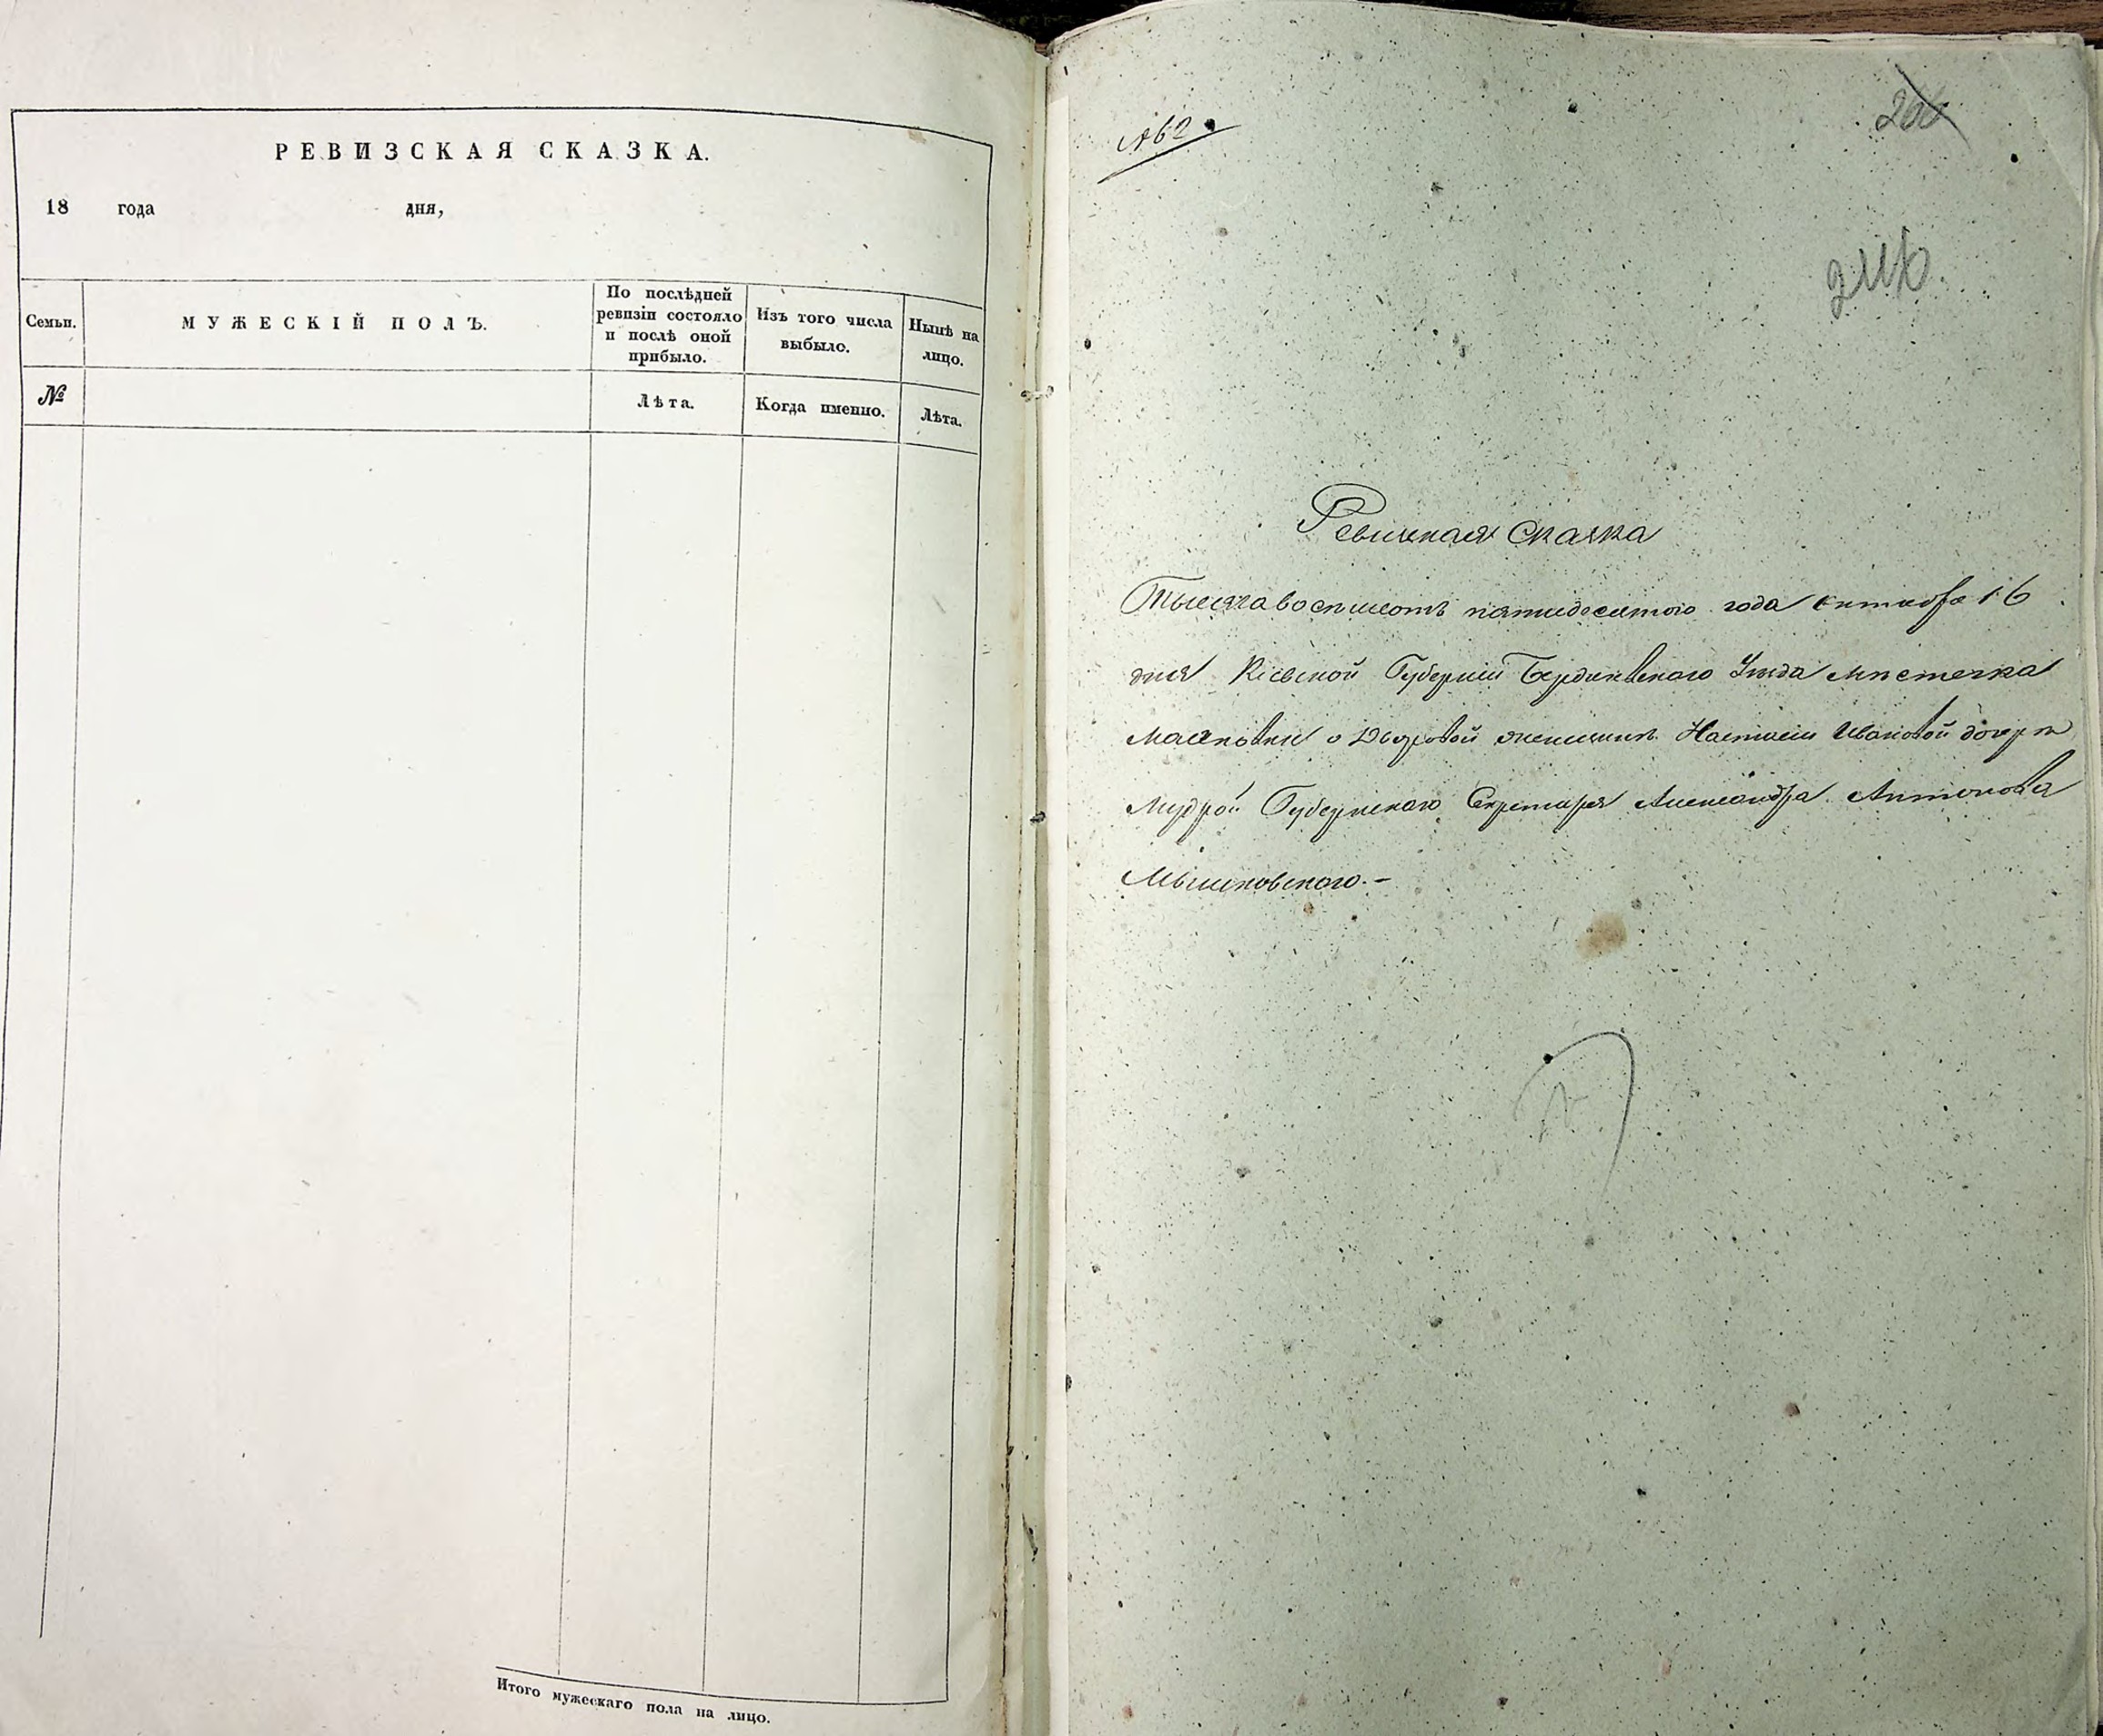 РЕВИЗСКАЯ СКАЗКА.
18 года дня,
Семьи.
МУЖЕСКІЙ ПОЛЪ.
По послѣдней
ревизіи состояло
и послѣ оной
прибыло.
Изъ того числа
выбыло.
Нынѣ на
лицо.
№
Лѣта.
Когда именно.
Лѣта.
Итого мужескаго пола на лицо.
№62.
266
Ревизская Сказка
Тысяча восемсотъ пятидесятого года октября 16
дня Кіевской Губерніи Бердичевского Уезда местечка
о Дворовой женщине Настасіи Ивановой дочере
Мудрой Губернского Секретаря Александра Антонова
Мышковского.-